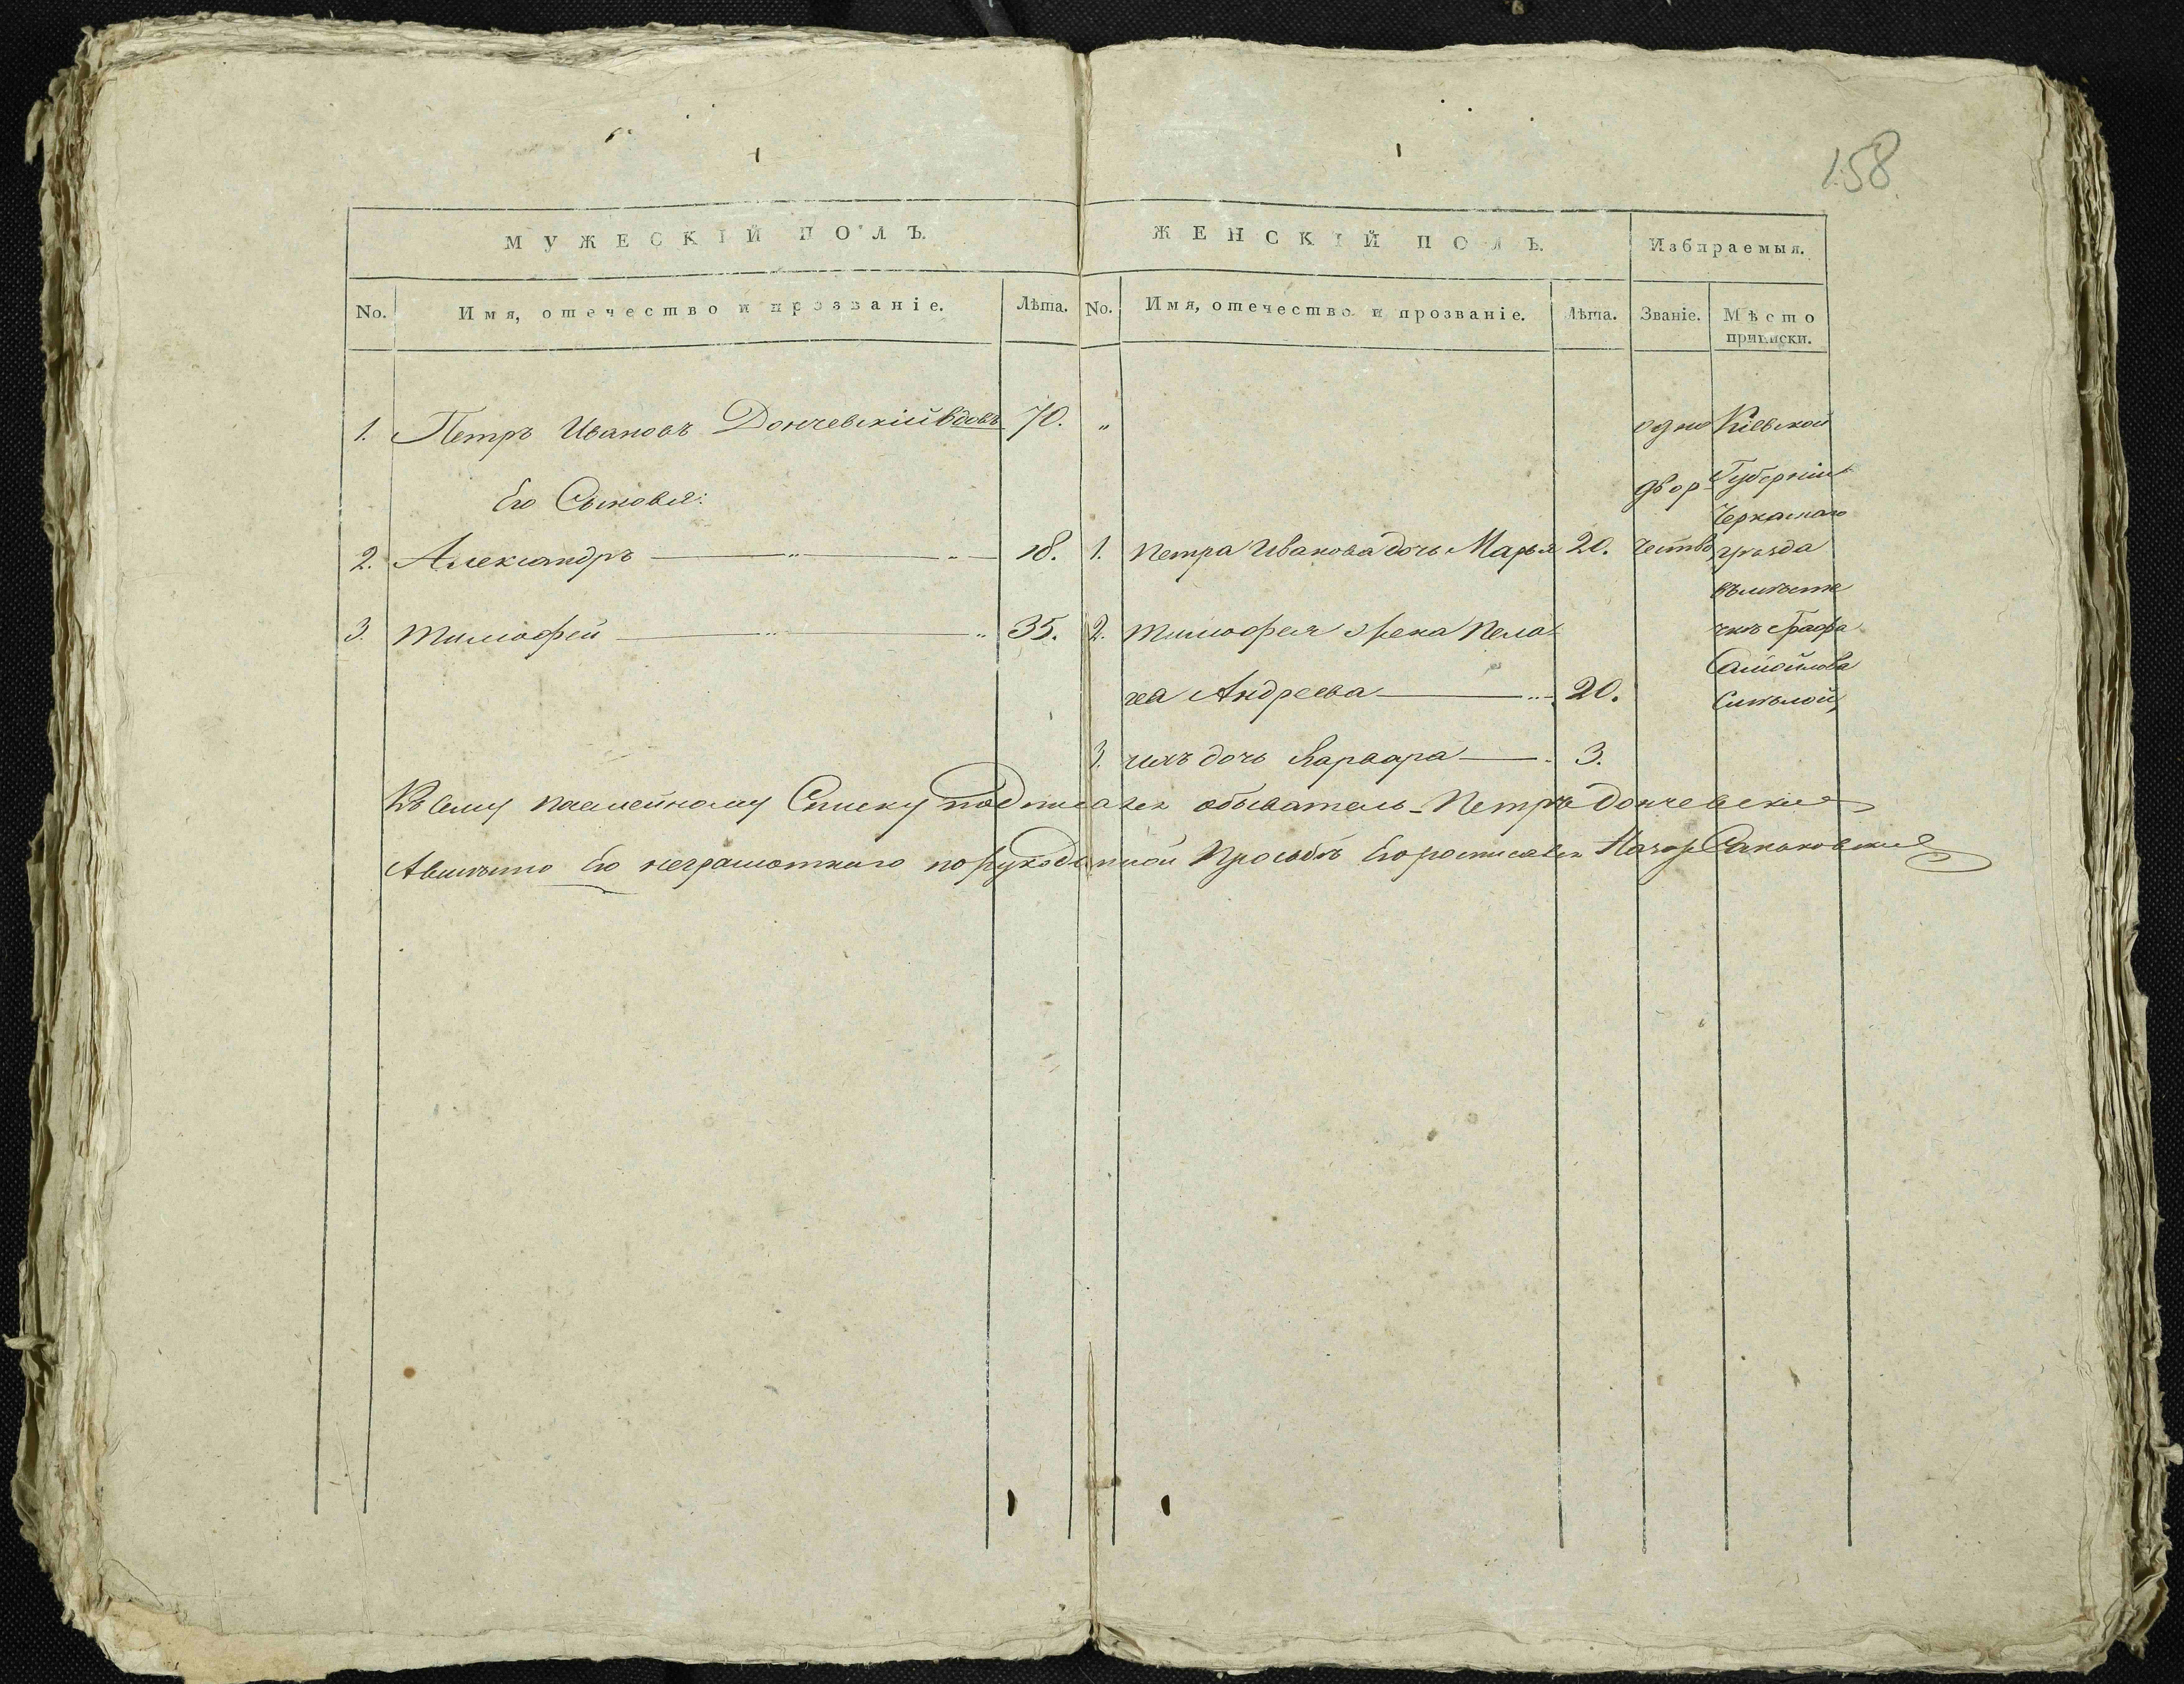 158
МУЖЕСКІЙ ПОЛЪ. ЖЕНСКІЙ ПОЛЪ. Избираемыя.
No. Имя, отечество и прозваніе. Лѣта. No. Имя, отечество и прозваніе. Лѣта. Званіе. Мѣсто
приписки.
1. Петръ Ивановъ Дончевскій вдовъ 70. „ одно Кіевской
Его Сыновья: двор Губерніи
Черкаскаго
2. Александръ — „ — „ — 18. 1. Петра Иванова дочь Марья 20. чество уѣзда
въ мѣсте
3. Тимофей — „ — „ 35. 2. Тимофея жена Пела- чкѣ Графа
Самойлова
гея Андреева — „ — 20. Смѣлой,
3. ихъ дочь Варвара — 3.
Къ сему посемейному Списку подписался обыватель Петръ Дончевскій
А вмѣсто Его неграмотного по рукоданной Прозьбѣ Его росписался